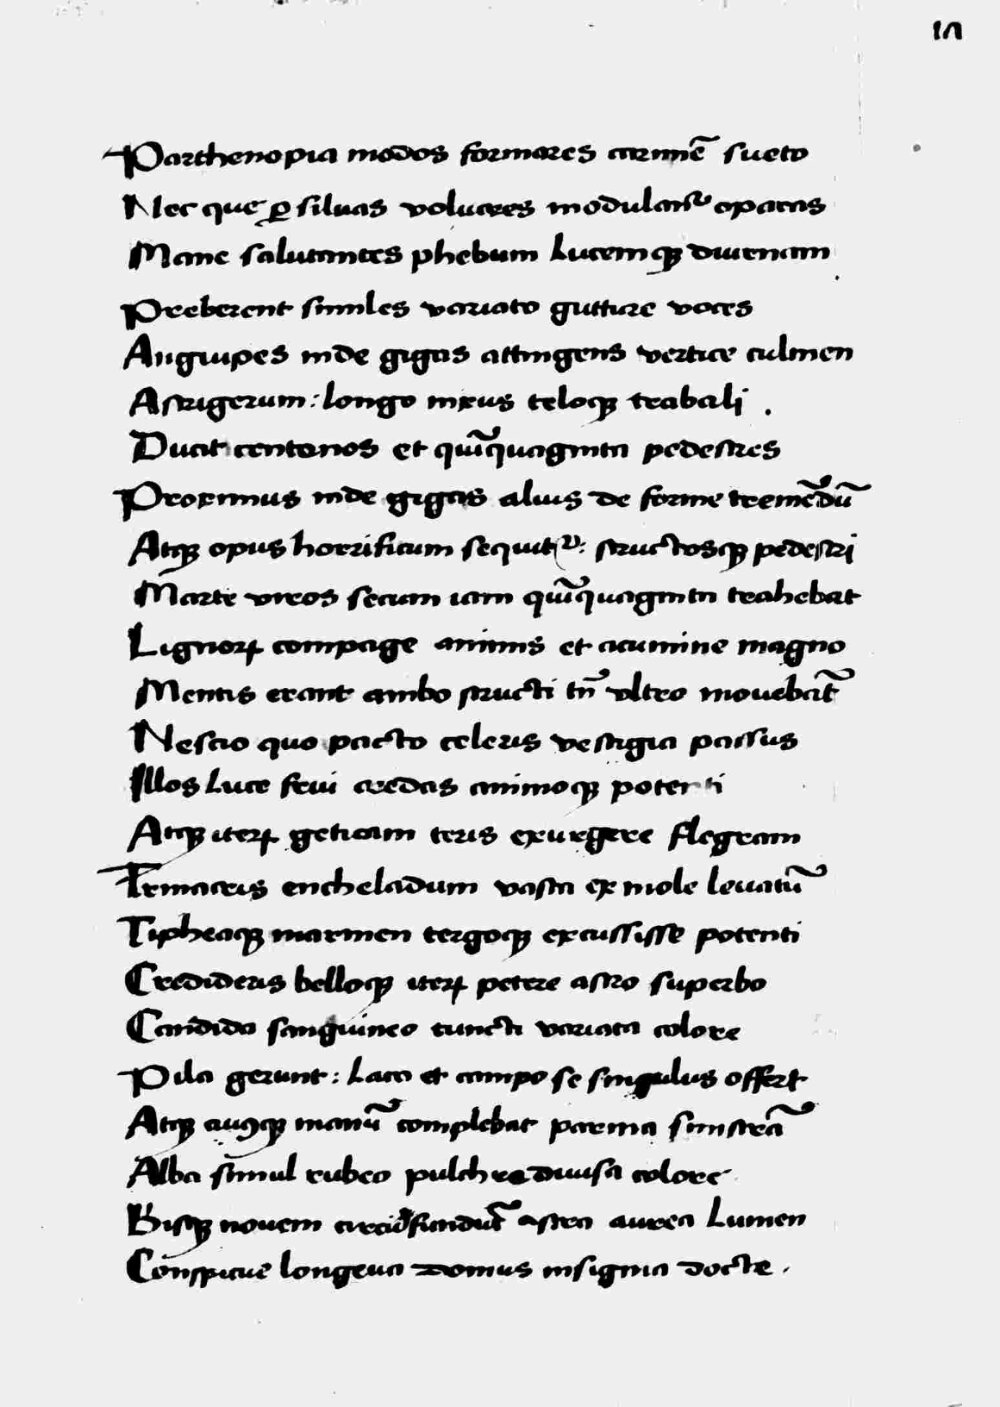 Parthenopia modos formares carmiē sueto
Nec que ꝑ siluas volucres modulant᷑ opacas
Mane salutantes phebum Lucemqꝫ diurnam
Preberent similes variato gutture voces
Anguipes inde gigas attingens vertice culmen
Astrigerum: longo nixus teloqꝫ trabali .
Ducit centenos et quīquaginta pedestres
Proximus inde gigas alius de forme tremēdū
Atqꝫ opus horrificum sequit᷑: structosqꝫ pedestri
Marte viros secum iam quīquaginta trahebat
Lignoꝝ compage animis et acumine magno
Mentis erant ambo structi tn̄ vltro mouebāt
Nescio quo pacto celeris vestigia passus
Illos Luce frui credas animoqꝫ potenti
Atqꝫ iteꝝ geticam teris exurgere flegram
Trinacris encheladum vasta ex mole leuatū
Tipheaqꝫ marmen tergoqꝫ excussisse potenti
Credideris belloqꝫ iteꝝ petere astro superbo
Candida sanguineo cuncti variata colore
Pila gerunt: Laca et campo se singulus offert
Atqꝫ cuiqꝫ manū complebat parma sinistrā
Alba simul rubeo pulchre diuisa colore
Bisqꝫ nouem circūfundūt astra aurea Lumen
Conspicue longeua domus insignia docte .